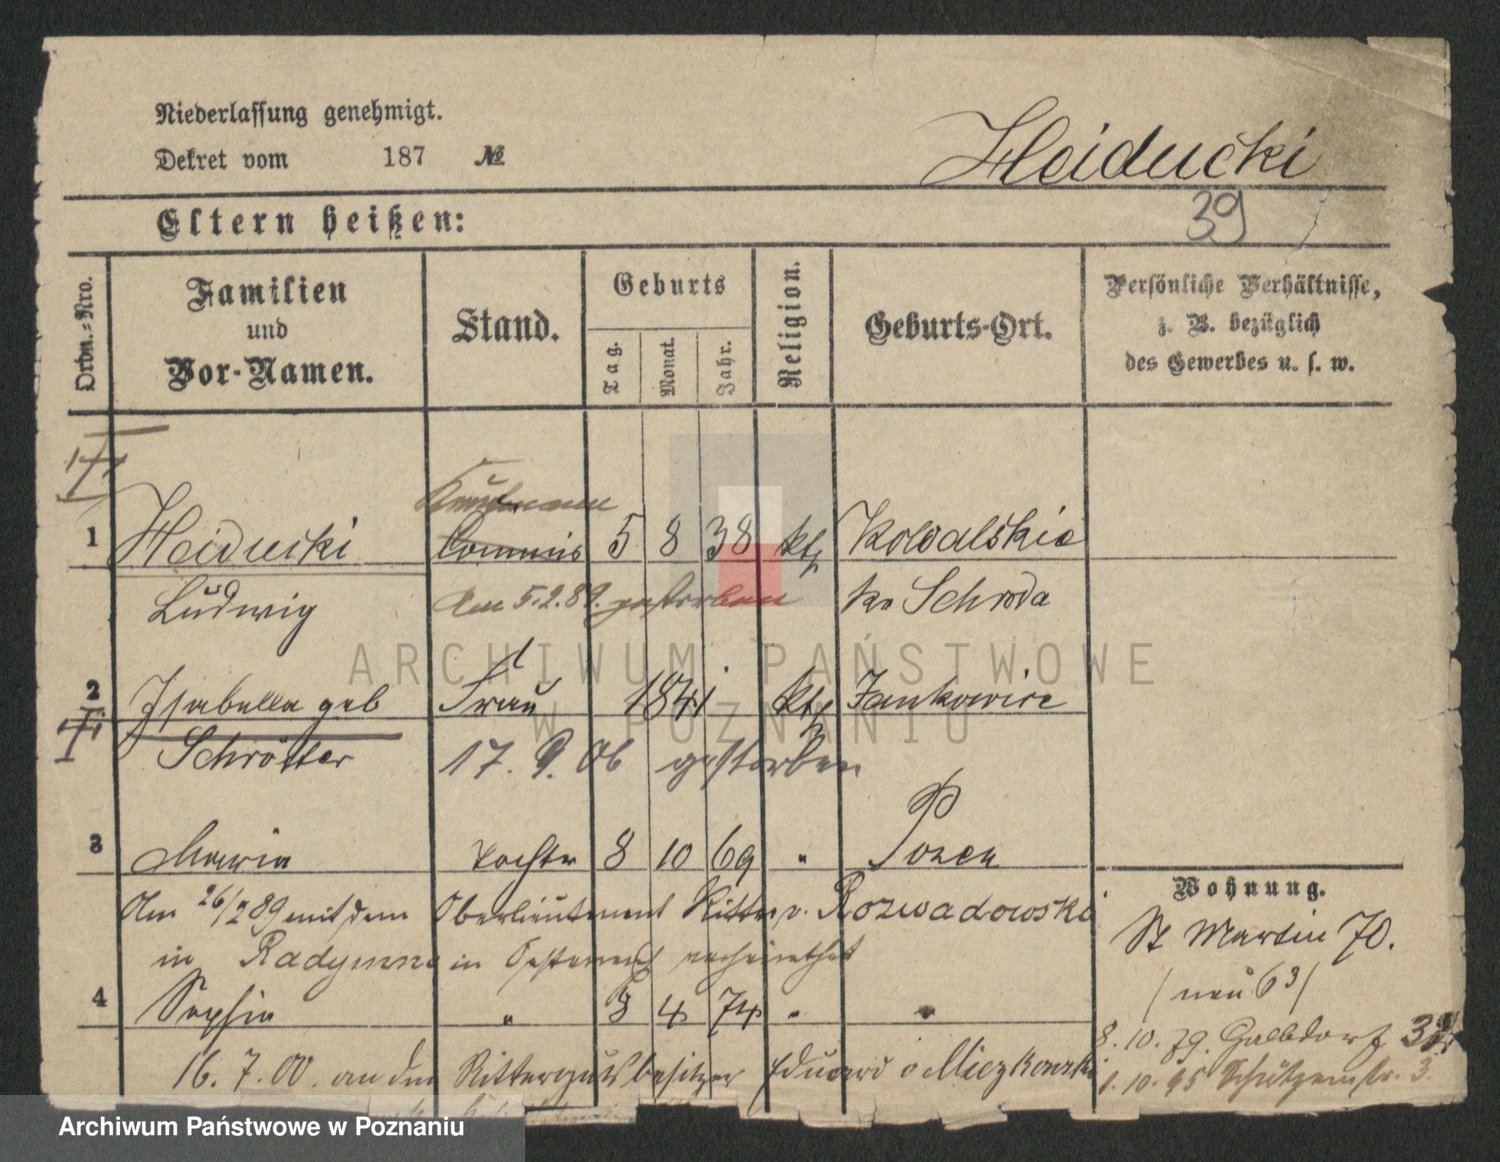 Niederlassung genehmigt.
Dekret vom 187 №
Heiducki
39
Eltern heißen:
Ordn.-Nro.
Familien
und
Vor-Namen.
Stand.
Geburts
Tag.
Monat.
Jahr.
Religion.
Geburts-Ort.
Persönliche Verhältnisse,
z. B. bezüglich
des Gewerbes u. s. w.
Kaufmann
1 Heiducki Commis 5 8 38 kth Kowalskie
Ludwig Am 5.2.89. gestorben Kr Schroda
2 Isabella geb Frau 1841 kth Jankowice
Schrötter 17. 9. 06 gestorben
3 Maria Tochter 8 10 69 " Posen
Am 26/2 89 mit dem Oberlieutenant Ritter v. Rozwadowski
in Radymno in Oesterreich verheirathet
4 Sophie " 8 4 74 " "
16. 7. 00. an den Rittergutsbesitzer Eduard v Mieczkowski
Wohnung.
St Martin 70.
/neu 63/
8. 10. 79. Halbdorf
1. 10. 95 Schützenstr. 3.
ARCHIWUM PAŃSTWOWE
W POZNANIU
Archiwum Państwowe w Poznaniu